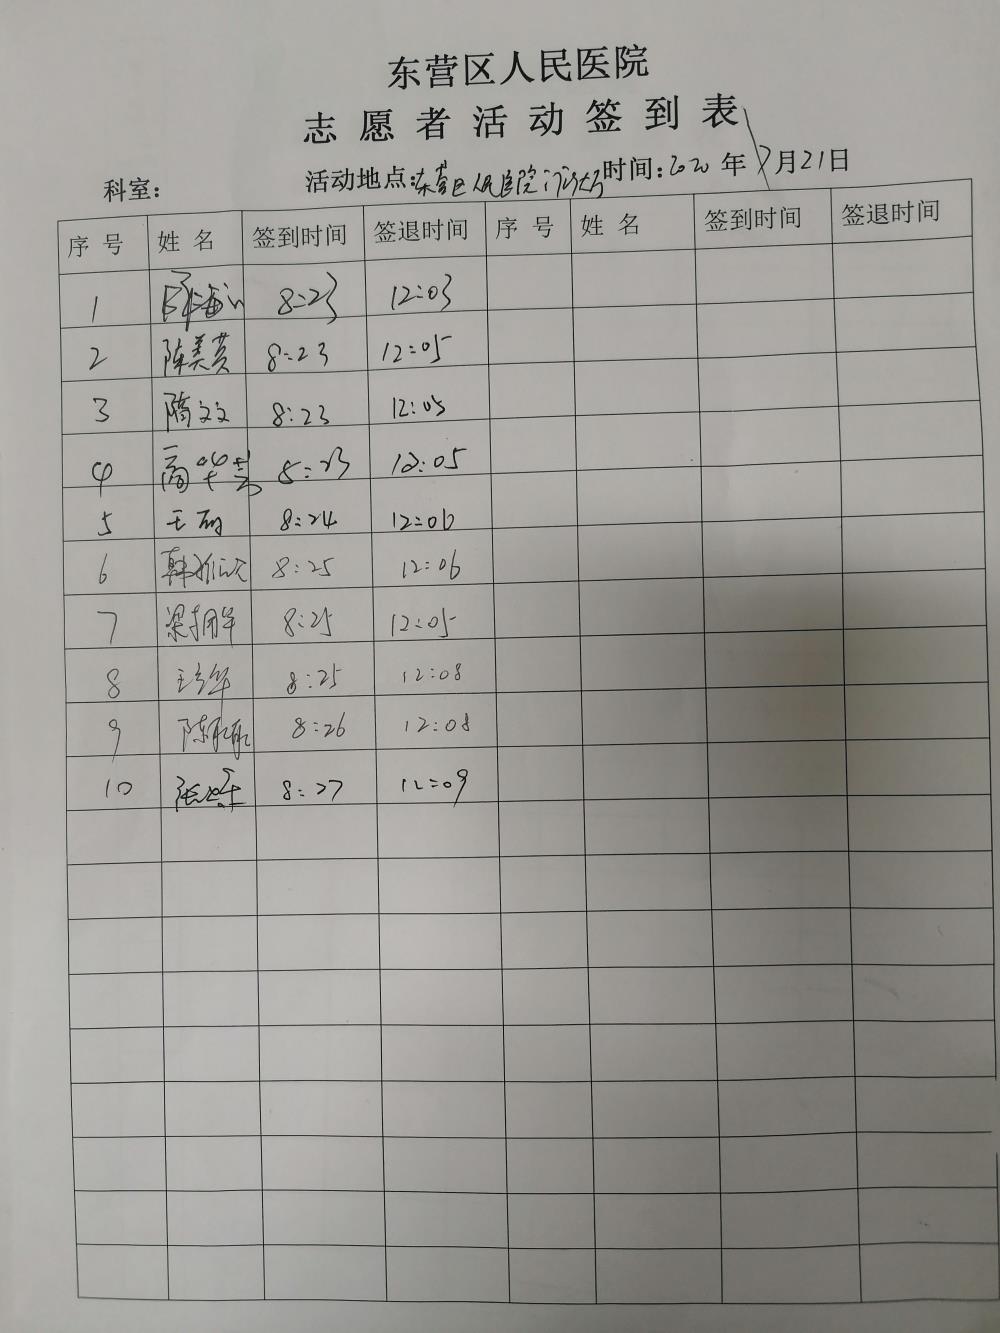 东营区人民医院
志愿者活动签到表
科室： 活动地点：东营区人民医院门诊大厅 时间：2020年7月21日
序号 姓名 签到时间 签退时间 序号 姓名 签到时间 签退时间
1 8:23 12:03
2 陈美英 8:23 12:05
3 隋文文 8:23 12:05
4 高华芸 8:23 12:05
5 王 8:24 12:06
6 韩 8:25 12:06
7 梁拥军 8:25 12:05
8 王 8:25 12:08
9 陈 8:26 12:08
10 张 8:27 12:09